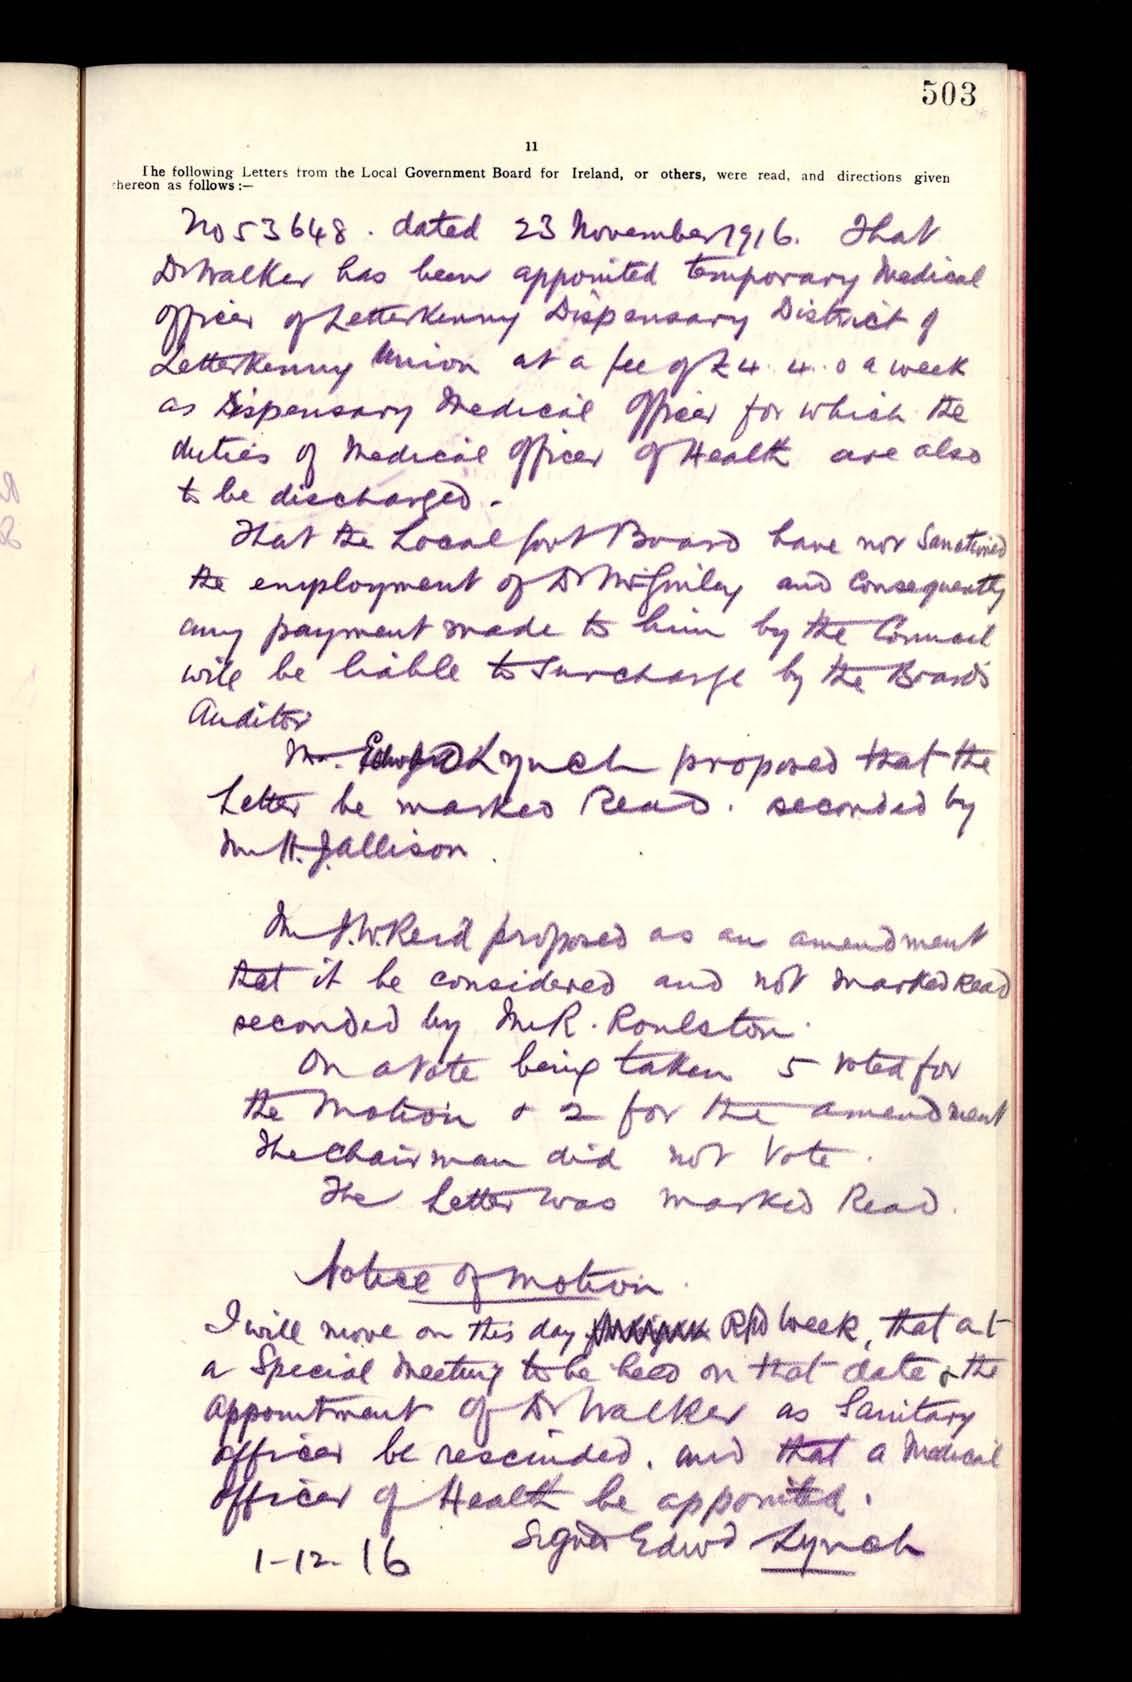 503
11
The following Letters from the Local Government Board for Ireland, or others, were read, and directions given
thereon as follows :—
No 53648. dated 23 November 1916. That
Dr Walker has been appointed temporary Medical
Officer of Letterkenny Dispensary District of
Letterkenny Union at a fee of £4. 4. 0 a week
as Dispensary Medical Officer for which the
duties of Medical Officer of Health are also
to be discharged.
That the Local Govt Board have not Sanctioned
the employment of Dr McGinley and Consequently
any payment made to him by the Council
will be liable to Surcharge by the Board's
Auditor
Mr. Edwd Lynch proposed that the
Letter be marked Read. seconded by
Mr H. J. Allison.
Mr J.W. Reid proposed as an amendment
that it be considered and not marked Read
seconded by Mr R. Roulston.
On a Vote being taken 5 voted for
the Motion & 2 for the amendment
The Chairman did not Vote.
The Letter was marked Read.
Notice of Motion
I will move on this day week, that at
a Special Meeting to be held on that date & the
appointment of Dr Walker as Sanitary
officer be rescinded. and that a Medical
officer of Health be appointed.
Signed Edwd Lynch
1-12-16